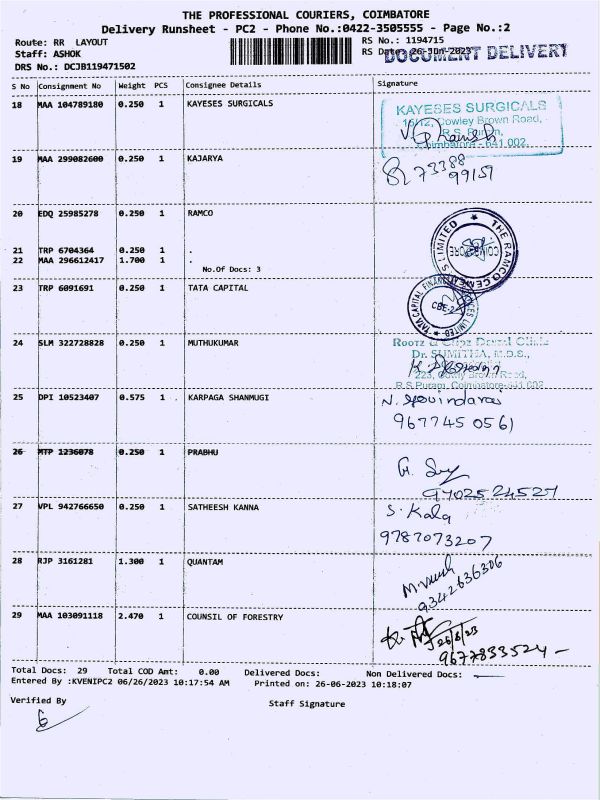 THE PROFESSIONAL COURIERS, COIMBATORE
Delivery Runsheet - PC2 - Phone No.:0422-3505555 - Page No.:2
Route: RR LAYOUT RS No.: 1194715
Staff: ASHOK RS Date: 26-Jun-2023 DOCUMENT DELIVERY
DRS No.: DCJB119471502
S No Consignment No Weight PCS Consignee Details Signature
18 MAA 104789180 0.250 1 KAYESES SURGICALS
KAYESES SURGICALS
Cowley Brown Road,
R.S. Puram,
Coimbatore - 641 002.
19 MAA 299082600 0.250 1 KAJARYA
73388
99151
20 EDQ 25985278 0.250 1 RAMCO
THE RAMCO CEMENTS LIMITED
COIMBATORE
21 TRP 6704364 0.250 1 .
22 MAA 296612417 1.700 1 .
No.Of Docs: 3
23 TRP 6091691 0.250 1 TATA CAPITAL
TATA CAPITAL FINANCIAL SERVICES LIMITED
CBE-2
24 SLM 322728828 0.250 1 MUTHUKUMAR
Rootz & Dental Clinic
Dr. SUMITHA, M.D.S.,
R.S.Puram, Coimbatore-641 002
25 DPI 10523407 0.575 1 . KARPAGA SHANMUGI
N. Govindaraj
9677450561
26 MTP 1236078 0.250 1 PRABHU
9702524527
27 VPL 942766650 0.250 1 SATHEESH KANNA
S. Kala
9787073207
28 RJP 3161281 1.300 1 QUANTAM
9342636306
29 MAA 103091118 2.470 1 COUNSIL OF FORESTRY
26/6/23
9677833524 -
Total Docs: 29 Total COD Amt: 0.00 Delivered Docs: Non Delivered Docs:
Entered By :KVENIPC2 06/26/2023 10:17:54 AM Printed on: 26-06-2023 10:18:07
Verified By Staff Signature